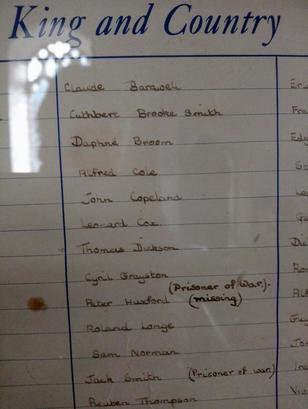 King and Country
Claude Barwell
Cuthbert Brooke Smith
Daphne Broom
Alfred Cole
John Copeland
Leonard Cox
Thomas Dickson
Cyril Grayston (Prisoner of War).
Peter Huxford (missing)
Roland Longe
Sam Norman
Jack Smith (Prisoner of war)
Reuben Thompson